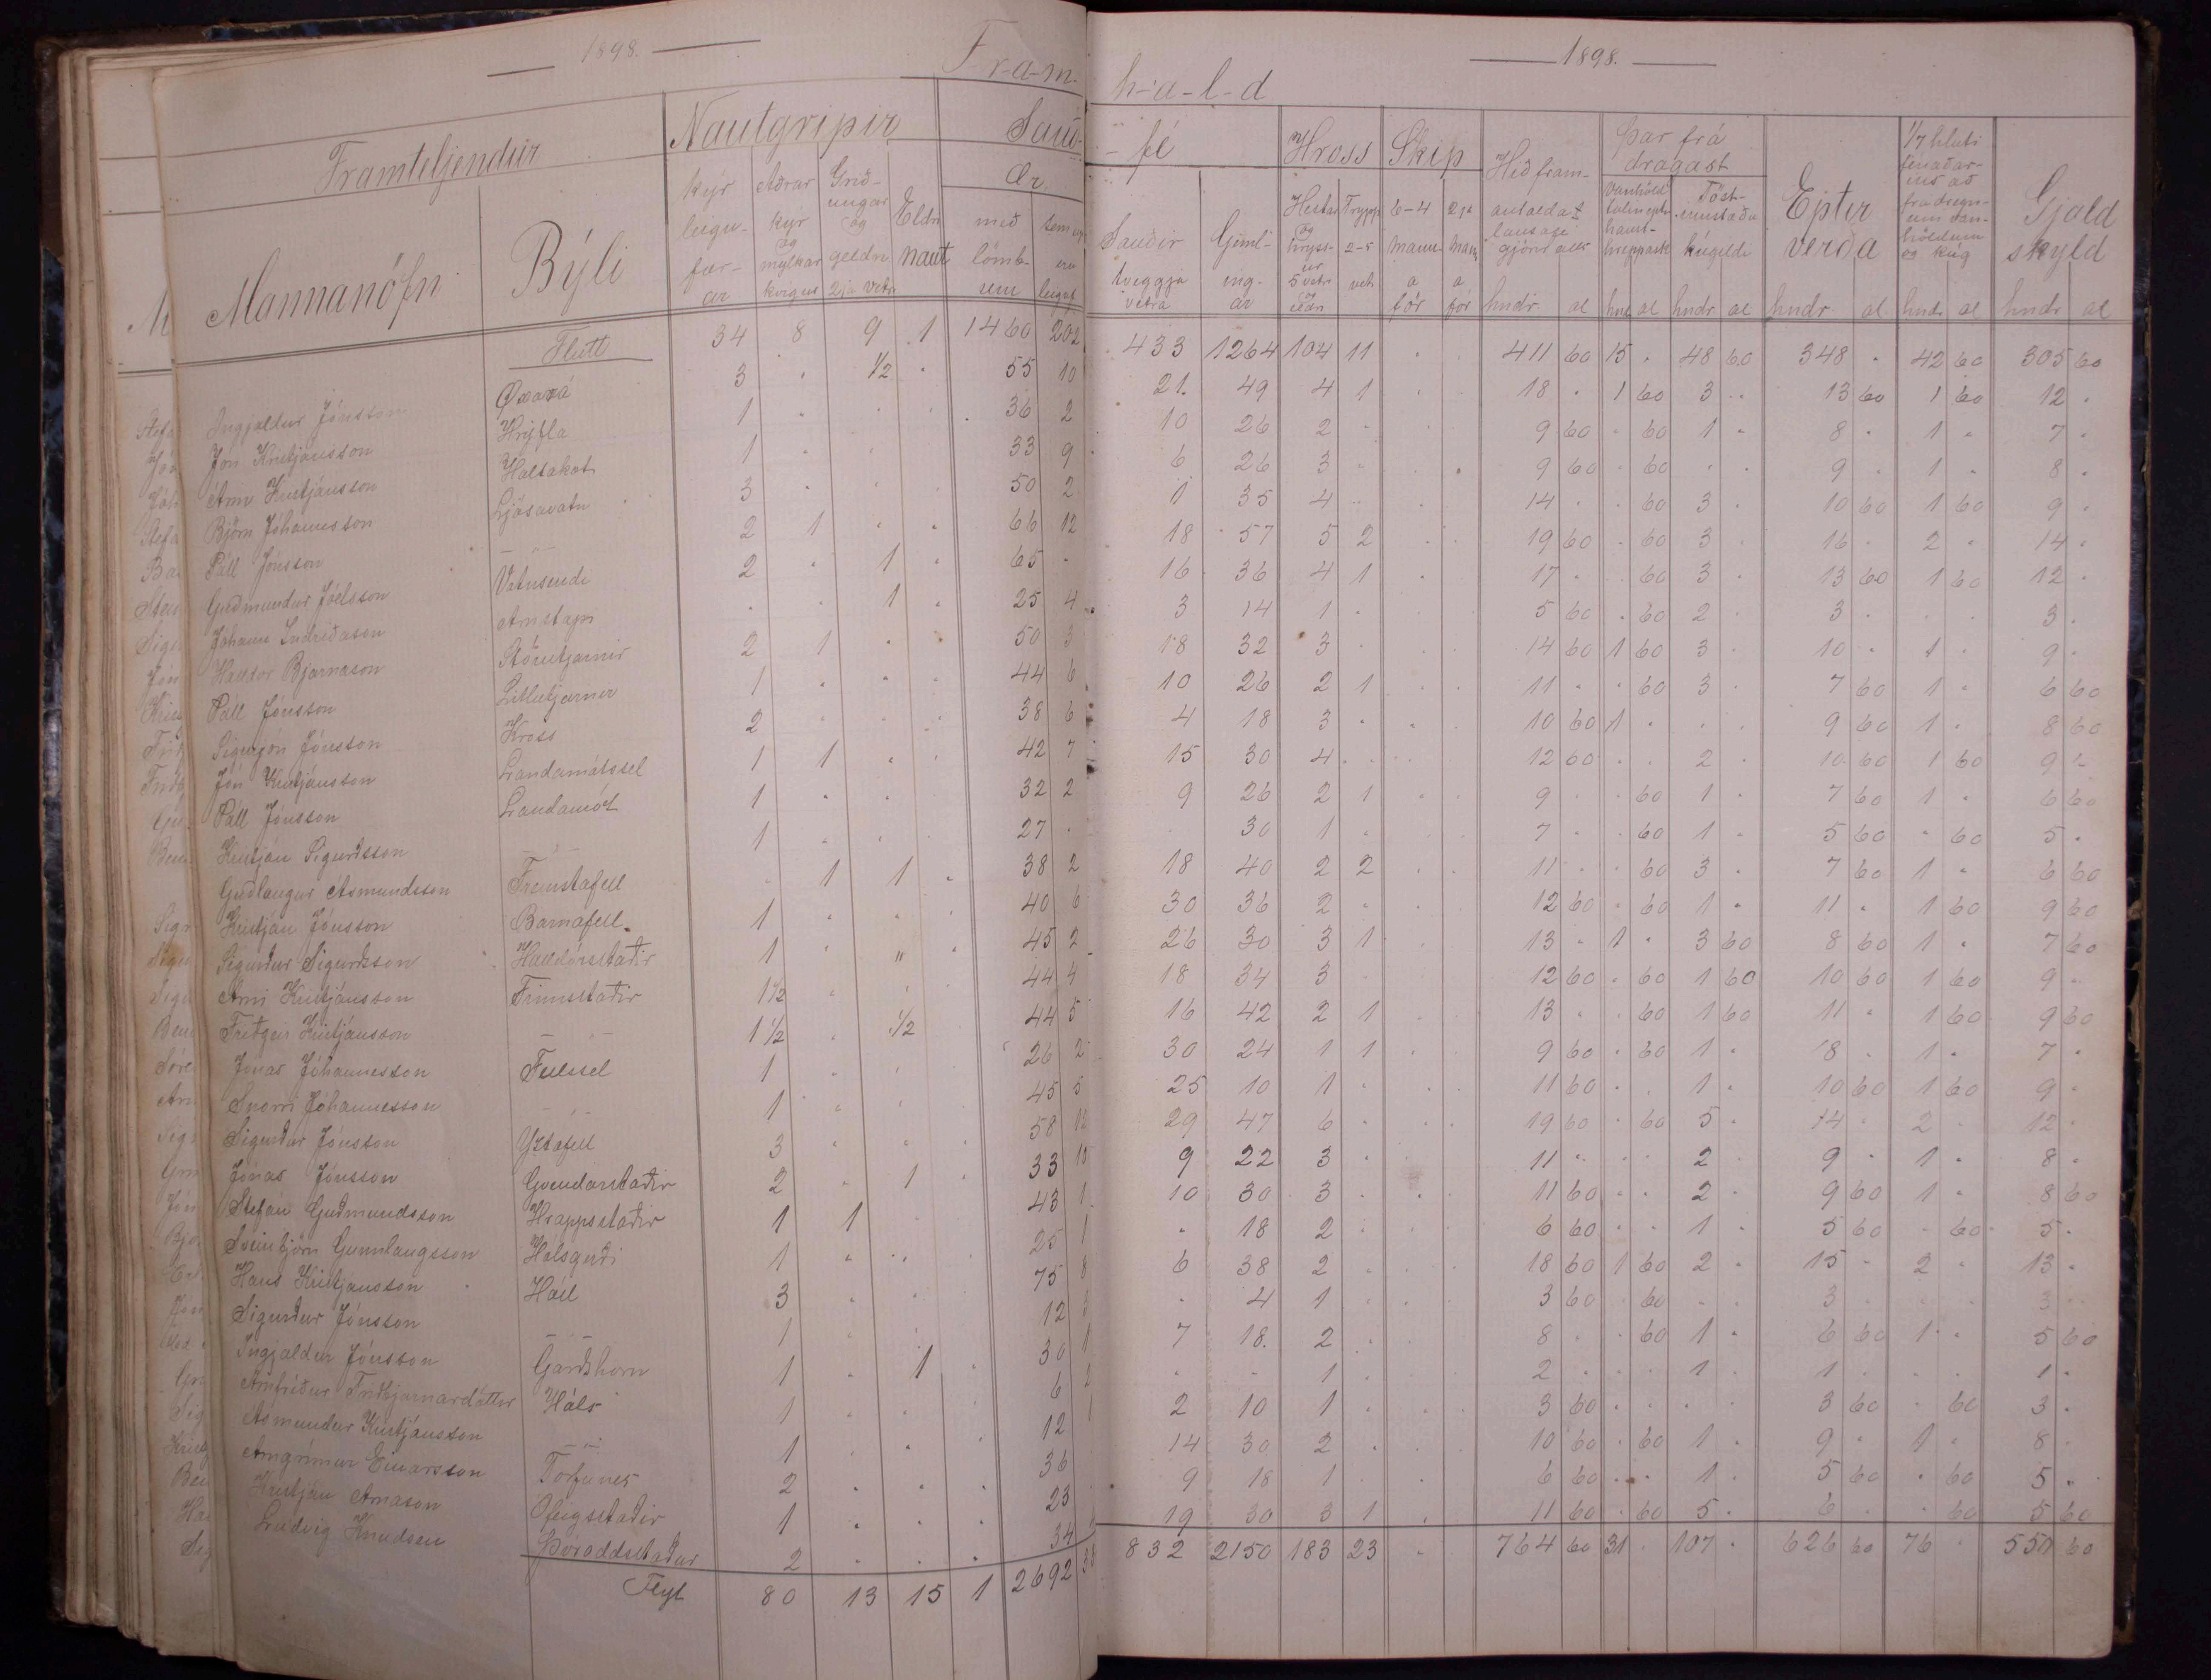 1898.
Fram-
Framteljendur
Nautgripir
Sauð-
Mannanöfn
Býli
kýr leigu-fær-ar
Aðrar kýr og mylkar kvígur
Grið-ungar og geldn. 2ja vetr.
Eldri naut
Ær
með lömb-um
sem eru
Flutt 34 8 9 1 1460 202
Ingjaldur Jónsson Öxará 3 . ½ . 55 10
Jón Kristjánsson Hrýfla 1 . . . 36 2
Árni Kristjánsson Holtakot 1 . . . 33 9
Björn Jóhannsson Ljósavatn 3 . . . 50 2
Páll Jónsson – – 2 1 . . 66 12
Guðmundur Jóelsson Vatnsendi 2 . 1 . 65 .
Jóhann Indriðason Arnstapi . . 1 . 25 4
Halldor Bjarnason Stórutjarnir 2 1 . . 50 3
Páll Jónsson Litlutjarnir 1 . . . 44 6
Sigurjón Jónsson Kross 2 . . . 38 6
Jón Kristjánsson Landamótssel 1 1 . . 42 7
Páll Jónsson Landamót 1 . . . 32 2
Kristján Sigurðsson – – 1 . . . 27 .
Guðlaugur Ásmundsson Fremstafell . 1 1 . 38 2
Kristján Jónsson Barnafell 1 . . . 40 6
Sigurður Sigurðsson Halldórsstaðir 1 . " . 45 2
Árni Kristjánsson Finnsstaðir 1½ . . . 44 4
Friðgeir Kristjánsson – – 1½ . ½ 44 5
Jónas Jóhannesson Fellssel 1 . . . 26 2
Snorri Jóhannesson – – 1 . . . 45 5
Sigurður Jónsson Yztafell 3 . . . 58 12
Jónas Jónsson Gvendarstaðir 2 . 1 . 33 10
Stefán Guðmundsson Hrappsstaðir 1 1 . 43 1
Sveinbjörn Gunnlaugsson Hálsgerði 1 . . . 25 1
Hans Kristjánsson Háll 3 . . 75 8
Sigurður Jónsson – – 1 . . 12 3
Ingjaldur Jónsson Garðshorn 1 . 1 . 30 1
Arnfríður Friðbjarnardóttir Háls 1 . . . 6 2
Ásmundur Kristjánsson – – 1 . . . 12 1
Arngrímur Einarsson Torfunes 2 . . . 36
Kristján Árnason Ófeigsstaðir 1 . . . 23
Ludvig Knudsen Þóroddsstaður 2 . . . 34
Flyt 80 13 15 1 2692
1898.
h-a-l-d
- fé
Hross
Skip
Hið fram-antaldat lausafé gjörir alls
Þar frá dragast
Epter verða
1/7 hluti fénaðar-ins að frádregn-um van-höldum og kúg
Gjald skyld
Sauðir tveggja vetra
Geml-ing-ar
Hestar og hryss-ur 5 vetr og eldri
Trypp. 2-5 vet.
6-4 manna för
2ja mann för
hndr. al hnd al hndr. al hndr. al hndr. al hndr. al
433 1264 104 11 . . 411 60 15 . 48 60 348 . 42 60 305 60
21. 49 4 1 . . 18 . 1 60 3 . 13 60 1 60 12 .
10 26 2 . . 9 60 . 60 1 . 8 . 1 . 7 .
6 26 3 . . . 9 60 . 60 . . 9 . 1 . 8 .
1 35 4 . . 14 . . 60 3 . 10 60 1 60 9 .
18 57 5 2 . . 19 60 . 60 3 . 16 . 2 . 14 .
16 36 4 1 . 17 . . 60 3 . 13 60 1 60 12 .
3 14 1 . . 5 60 . 60 2 . 3 . . . 3 .
18 32 3 . . 14 60 1 60 3 . 10 . 1 . 9 .
10 26 2 1 . . 11 . . 60 3 . 7 60 1 . 6 60
4 18 3 . . . 10 60 1 . . . 9 60 1 . 8 60
15 30 4 . . . 12 60 . . 2 . 10 60 1 60 9 .
9 26 2 1 . . 9 . . 60 1 . 7 60 1 . 6 60
. 30 1 . . . 7 . . 60 1 . 5 60 . 60 5 .
18 40 2 2 . . 11 . . 60 3 . 7 60 1 . 6 60
30 36 2 . . 12 60 . 60 1 . 11 . 1 60 9 60
26 30 3 1 . 13 . 1 . 3 60 8 60 1 . 7 60
18 34 3 . . 12 60 . 60 1 60 10 60 1 60 9 .
16 42 2 1 . 13 . . 60 1 60 11 . 1 60 9 60
30 24 1 1 . 9 60 . 60 1 . 8 . 1 . 7 .
25 10 1 . . . 11 60 . . 1 . 10 60 1 60 9 .
29 47 6 . . . 19 60 . 60 5 . 14 . 2 . 12 .
9 22 3 . . 11 . . . 2 . 9 . 1 . 8 .
10 30 3 . . . 11 60 . . 2 . 9 60 1 . 8 60
. 18 2 . . . 6 60 . . 1 . 5 60 . 60 5 .
6 38 2 . . . 18 60 1 60 2 . 15 . 2 . 13 .
. 4 1 . . . 3 60 . 60 . . 3 . . . 3 .
7 18. 2 . . 8 . . 60 1 . 6 60 1 . 5 60
. . 1 . . . 2 . . . 1 . 1 . . . 1 .
2 10 1 . . . 3 60 . . . . 3 60 . 60 3 .
14 30 2 . . . 10 60 . 60 1 . 9 . 1 . 8
9 18 1 . . 6 60 . . 1 . 5 60 . 60 5 .
19 30 3 1 . 11 60 . 60 5 . 6 . . 60 5 60
832 2150 183 23 . 764 60 31 . 107 . 626 60 76 . 550 60